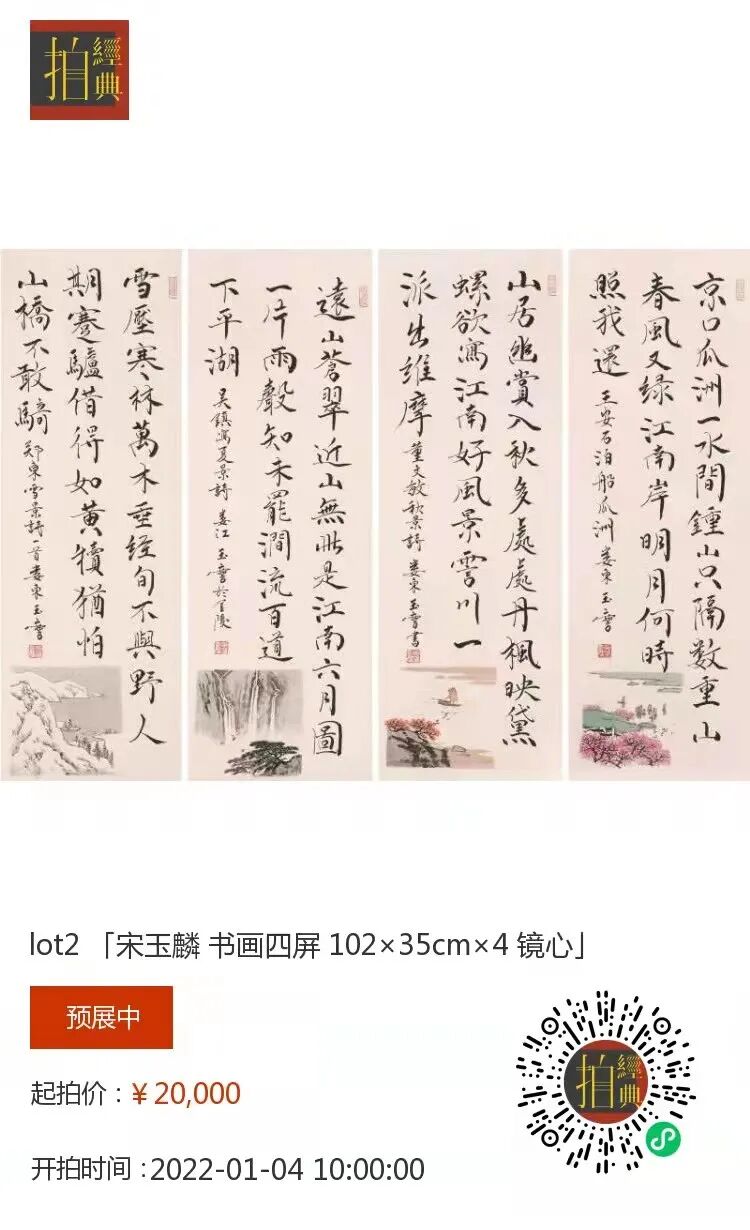 拍
經典
京口瓜洲一水間鍾山只隔數重山
春風又绿江南岸明月何時
照我還
王安石泊船瓜洲 婁東玉麐
山居幽賞入秋多處處丹楓映黛
螺欲寫江南好風景霅川一
派出維摩
董文敏秋景詩 婁東玉麐書
遠山蒼翠近山無此是江南六月圖
一片雨聲知未罷澗流百道
下平湖
吴鎮寫夏景詩 婁江玉麐於金陵
雪壓寒林萬木垂经旬不與野人
期蹇驢借得如黄犢猶怕
山橋不敢騎
郑東雪景詩一首婁東玉麐
lot2 「宋玉麟 书画四屏 102×35cm×4 镜心」
预展中
起拍价：¥ 20,000
开拍时间 : 2022-01-04 10:00:00
拍
經典